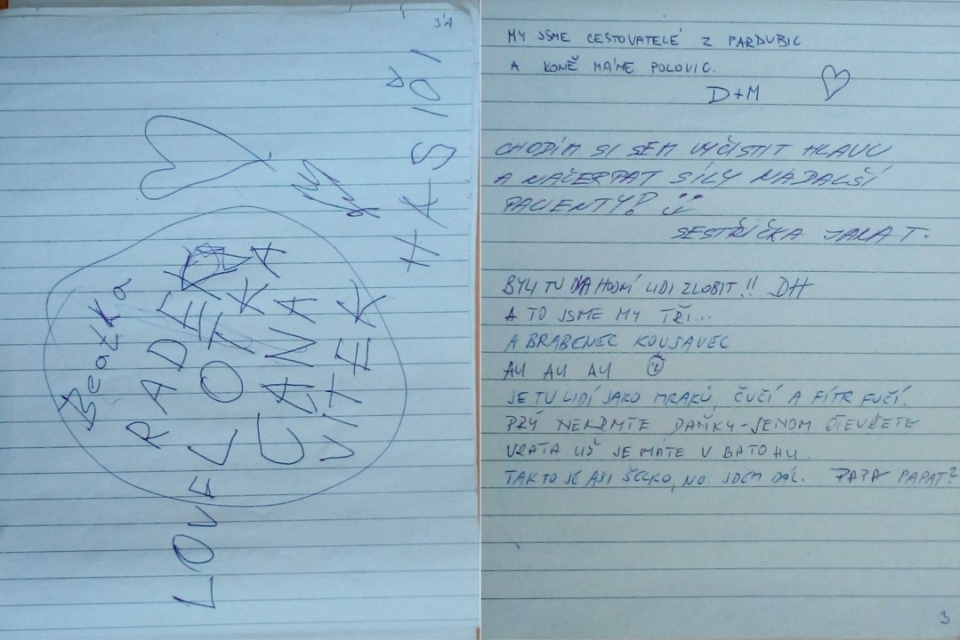 Beatka
RADEK
LOVE LOTKA
VÍTEK
HASIČI
MY JSME CESTOVATELÉ Z PARDUBIC
A KONĚ MÁME POLOVIC.
D+M
CHODÍM SI SEM VYČISTIT HLAVU
A NAČERPAT SÍLY NA DALŠÍ
PACIENTY!
SESTŘIČKA JANA T.
BYLI TU NA HODNÍ LIDI ZLOBIT!! DH
A TO JSME MY TŘI...
A BRABENEC KOUSAVEC
AU AU AU
JE TU LIDÍ JAKO MRAKŮ, ČUČÍ A FÍTR FUČÍ.
PRÝ NEKRMTE DAŇKY-JENOM OTEVŘETE
VRATA UŠ JE MÁTE V BATOHU.
TAKTO JE ASI ŠECKO, NO JDEM DÁL. PAPA PAPAT?
3